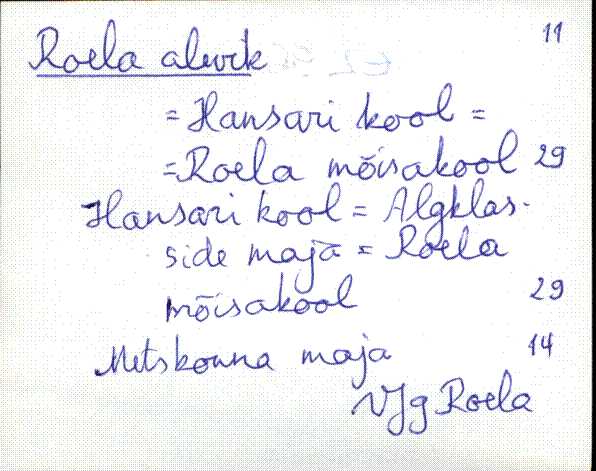 Roela alevik 11
= Hansari kool =
= Roela mõisakool 29
Hansari kool = Algklas-
side maja = Roela
mõisakool 29
Metskonna maja 14
VJg Roela